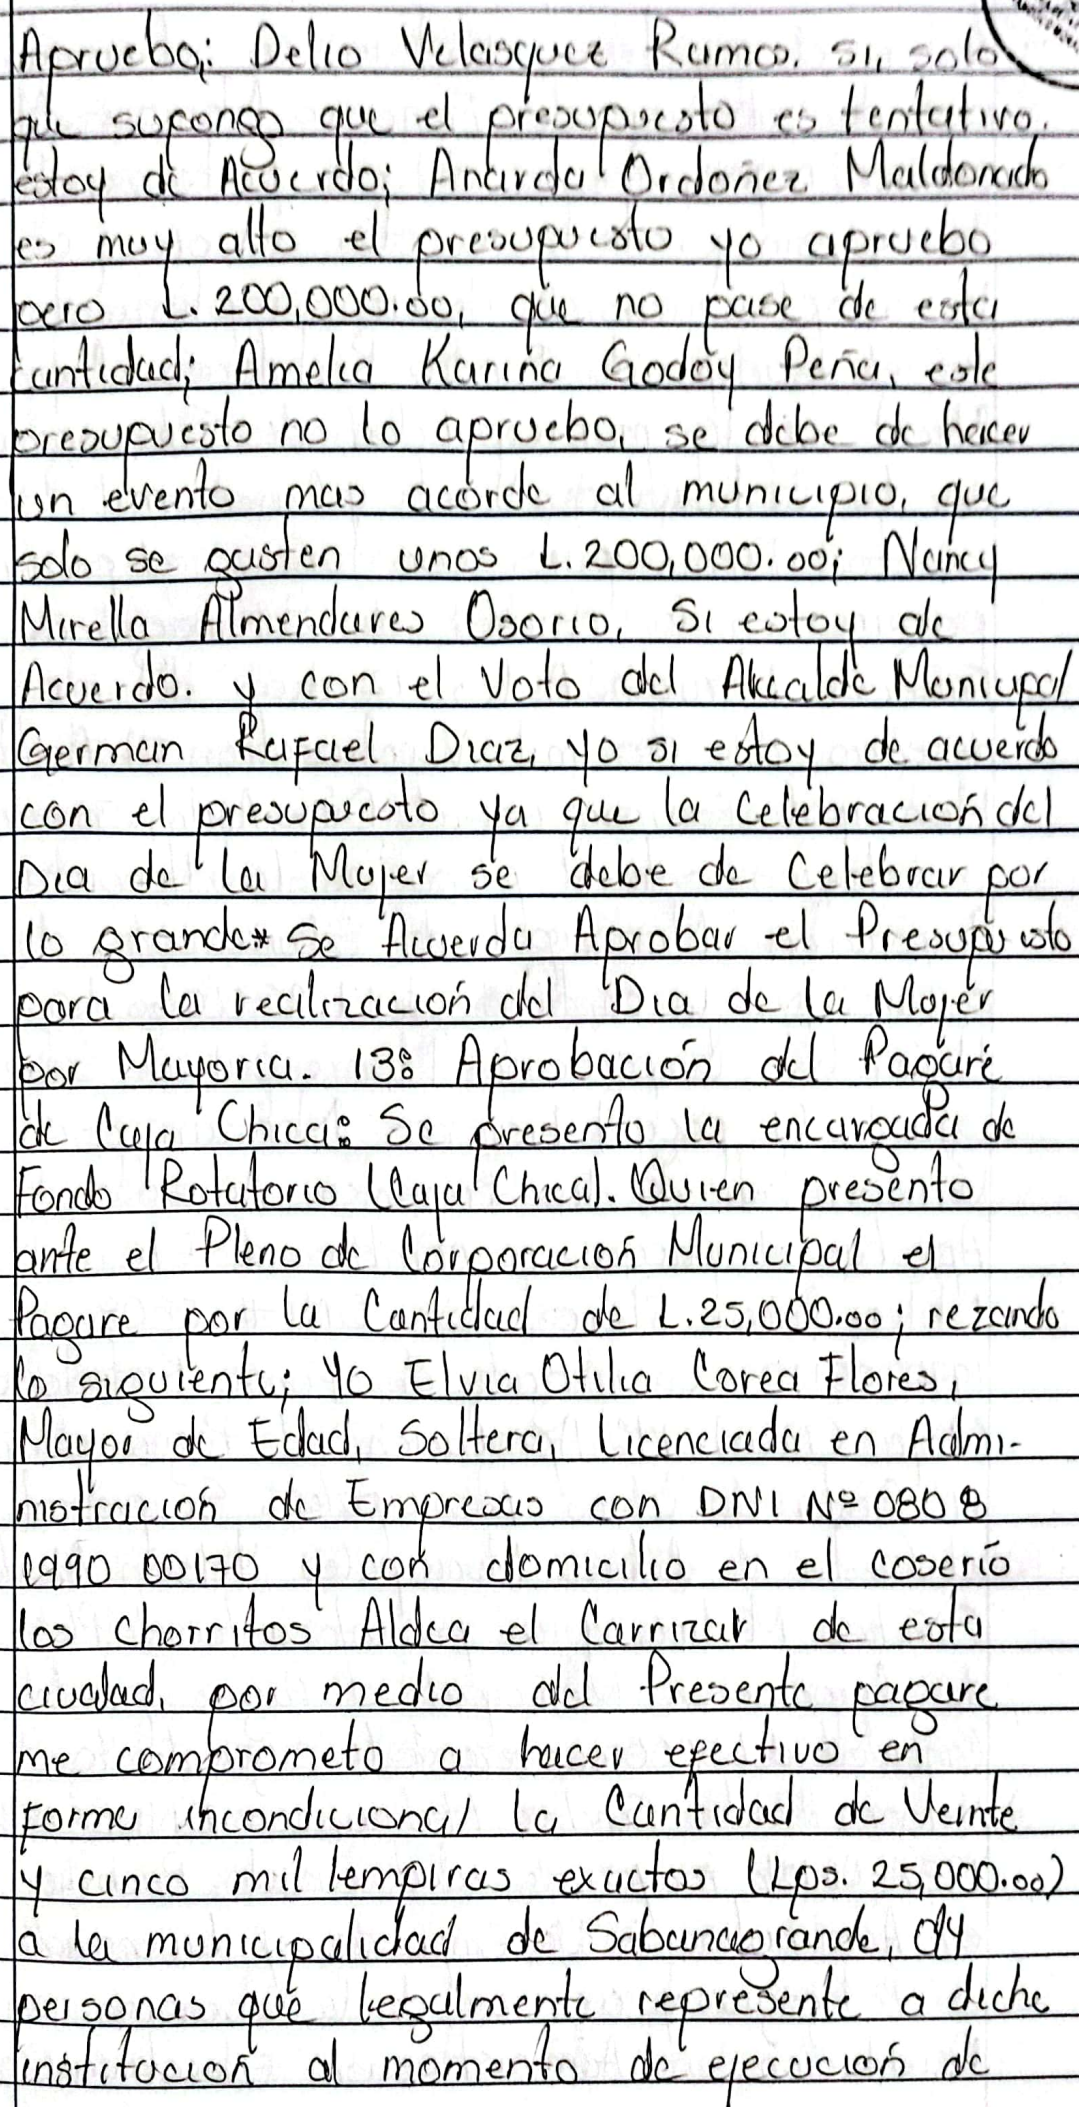 Apruebo; Delio Velasquez Ramos. si, solo
que supongo que el presupuesto es tentativo.
estoy de Acuerdo; Anarda Ordoñez Maldonado
es muy alto el presupuesto yo apruebo
pero L. 200,000.00, que no pase de esta
cantidad; Amelia Karina Godoy Peña, este
presupuesto no lo apruebo, se debe de hacer
un evento mas acorde al municipio, que
solo se gasten unos L. 200,000.00; Nancy
Mirella Almendares Osorio, Si estoy de
Acuerdo. y con el Voto del Alcalde Municipal
German Rafael Diaz, yo si estoy de acuerdo
con el presupuesto ya que la Celebración del
Dia de la Mujer se debe de Celebrar por
lo grande* Se Acuerda Aprobar el Presupuesto
para la realización del Dia de la Mujer
por Mayoria. 13: Aprobación del Pagaré
de Caja Chica: Se presento la encargada de
Fondo Rotatorio (Caja Chica). Quien presento
ante el Pleno de Corporación Municipal el
Pagare por la Cantidad de L. 25,000.00; rezando
lo siguiente; Yo Elvia Otilia Corea Flores,
Mayor de Edad, Soltera, Licenciada en Admi-
nistración de Empresas con DNI Nº 0808
1990 00170 y con domicilio en el caserio
los chorritos Aldea el Carrizal de esta
ciudad, por medio del Presente pagare
me comprometo a hacer efectivo en
forma incondicional la Cantidad de Veinte
y cinco mil lempiras exactos (Lps. 25,000.00)
a la municipalidad de Sabanagrande, o/y
personas que legalmente represente a dicha
institución al momento de ejecución de